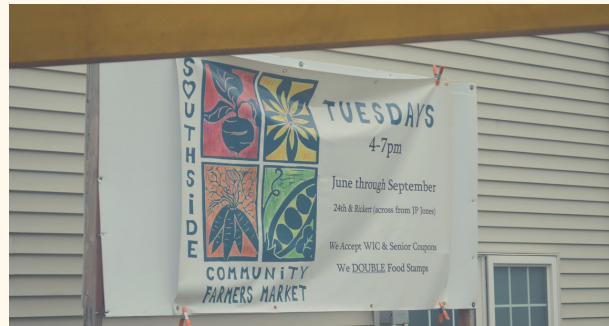 SOUTHSiDE
COMMUNiTY
FARMERS MARKET
TUESDAYS
4-7pm
June through September
24th & Rickert (across from JP Jones)
We Accept WIC & Senior Coupons
We DOUBLE Food Stamps